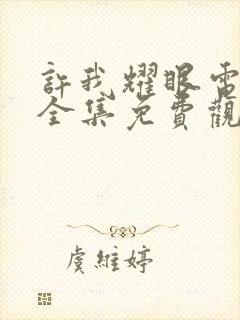 許我耀眼電
全集免費觀
虞維婷